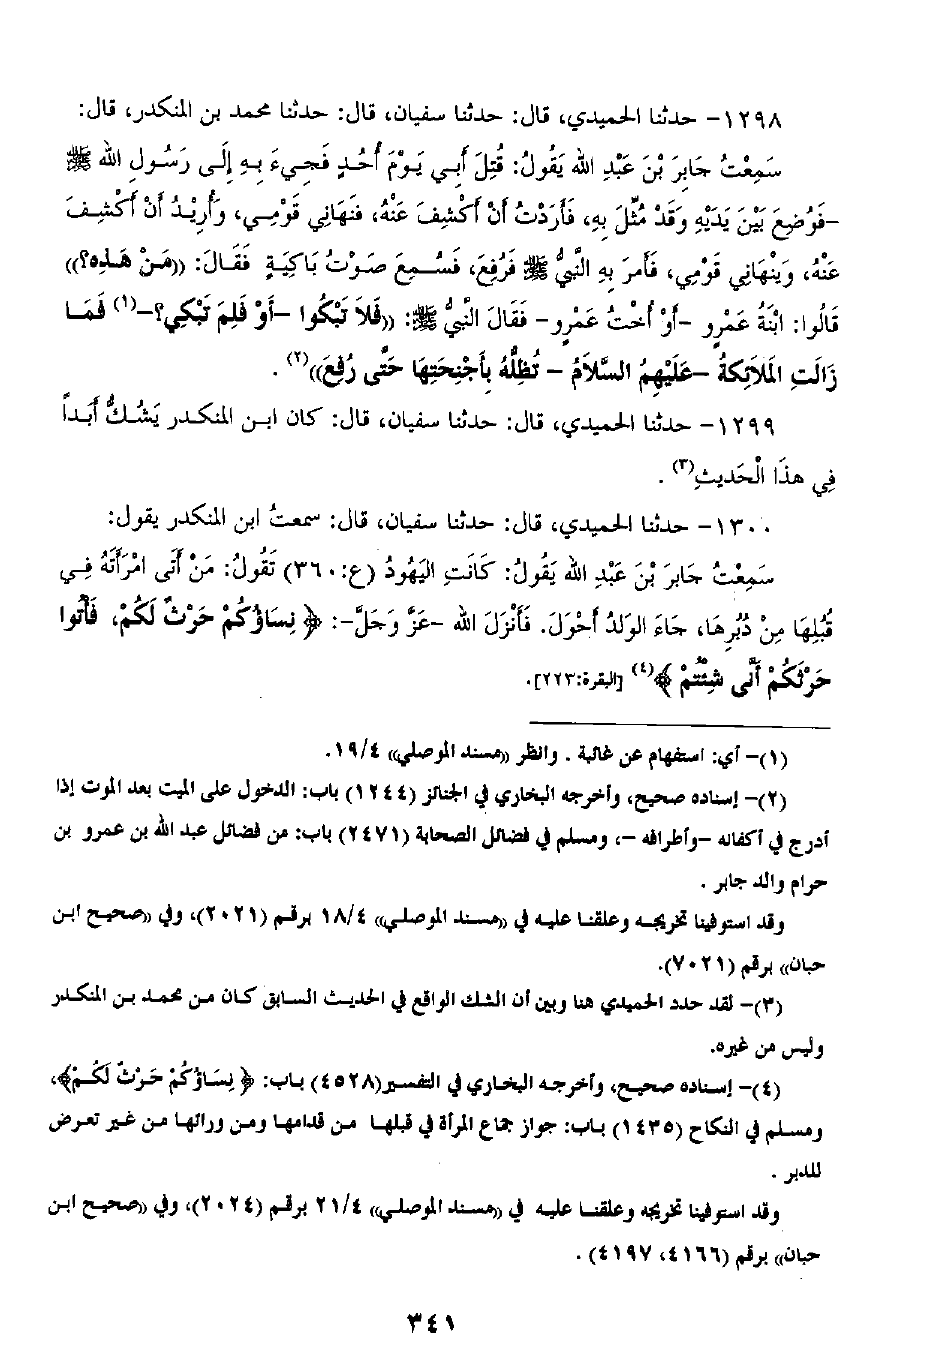 ١٢٩٨- حدثنا الحميدي، قال: حدثنا سفيان، قال: حدثنا محمد بن المنكدر، قال:
سَمِعْتُ جَابِرَ بْنَ عَبْدِ الله يَقُولُ: قُتِلَ أَبِي يَوْمَ أُحُدٍ فَجِيءَ بِهِ إِلَى رَسُولِ الله ﷺ
-فَوُضِعَ بَيْنَ يَدَيْهِ وَقَدْ مُثِّلَ بِهِ، فَأَرَدْتُ أَنْ أَكْشِفَ عَنْهُ، فَنَهَانِي قَوْمِي، وَأُرِيْدُ أَنْ أَكْشِفَ
عَنْهُ، وَيَنْهَانِي قَوْمِي، فَأَمَرَ بِهِ النَّبِيُّ ﷺ فَرُفِعَ، فَسُمِعَ صَوْتُ بَاكِيَةٍ فَقَالَ: ((مَنْ هَذِهِ؟))
قَالُوا: ابْنَةُ عَمْرٍو -أَوْ أُخْتُ عَمْرٍو- فَقَالَ النَّبِيُّ ﷺ: ((فَلاَ تَبْكُوا -أَوْ فَلِمَ تَبْكِي؟-(١) فَمَا
زَالَتِ الْمَلاَئِكَةُ -عَلَيْهِمُ السَّلاَمُ - تُظِلُّهُ بِأَجْنِحَتِهَا حَتَّى رُفِعَ))(٢) .
١٢٩٩- حدثنا الحميدي، قال: حدثنا سفيان، قال: كان ابن المنكدر يَشُكُّ أَبَداً
فِي هذَا الْحَدِيثِ(٣) .
١٣٠٠- حدثنا الحميدي، قال: حدثنا سفيان، قال: سمعتُ ابن المنكدر يقول:
سَمِعْتُ جَابِرَ بْنَ عَبْدِ الله يَقُولُ: كَانَتِ الْيَهُودُ (ع:٣٦٠) تَقُولُ: مَنْ أَتَى امْرَأَتَهُ فِي
قُبُلِهَا مِنْ دُبُرِهَا، جَاءَ الوَلَدُ أَحْوَلَ. فَأَنْزَلَ الله -عَزَّ وَجَلَّ-: ﴿ نِسَاؤُكُمْ حَرْثٌ لَكُمْ، فَأْتُوا
حَرْثَكُمْ أَنَّى شِئْتُمْ ﴾(٤) [البقرة:٢٢٣].
(١)- أي: استفهام عن غائبة . وانظر ((مسند الموصلي)) ١٩/٤.
(٢)- إسناده صحيح، وأخرجه البخاري في الجنائز (١٢٤٤) باب: الدخول على الميت بعد الموت إذا
أدرج في أكفانه -وأطرافه -، ومسلم في فضائل الصحابة (٢٤٧١) باب: من فضائل عبد الله بن عمرو بن
حرام والد جابر .
وقد استوفينا تخريجه وعلقنا عليه في ((مسند الموصلي)) ١٨/٤ برقم (٢٠٢١)، وفي ((صحيح ابن
حبان)) برقم (٧٠٢١).
(٣)- لقد حدد الحميدي هنا وبين أن الشك الواقع في الحديث السابق كان من محمد بن المنكدر
وليس من غيره.
(٤)- إسناده صحيح، وأخرجه البخاري في التفسير(٤٥٢٨) باب: ﴿ نِسَاؤُكُمْ حَرْثٌ لَكُمْ﴾،
ومسلم في النكاح (١٤٣٥) باب: جواز جماع المرأة في قبلها من قدامها ومن ورائها من غير تعرض
للدبر .
وقد استوفينا تخريجه وعلقنا عليه في ((مسند الموصلي)) ٢١/٤ برقم (٢٠٢٤)، وفي ((صحيح ابن
حبان)) برقم (٤١٦٦، ٤١٩٧) .
٣٤١